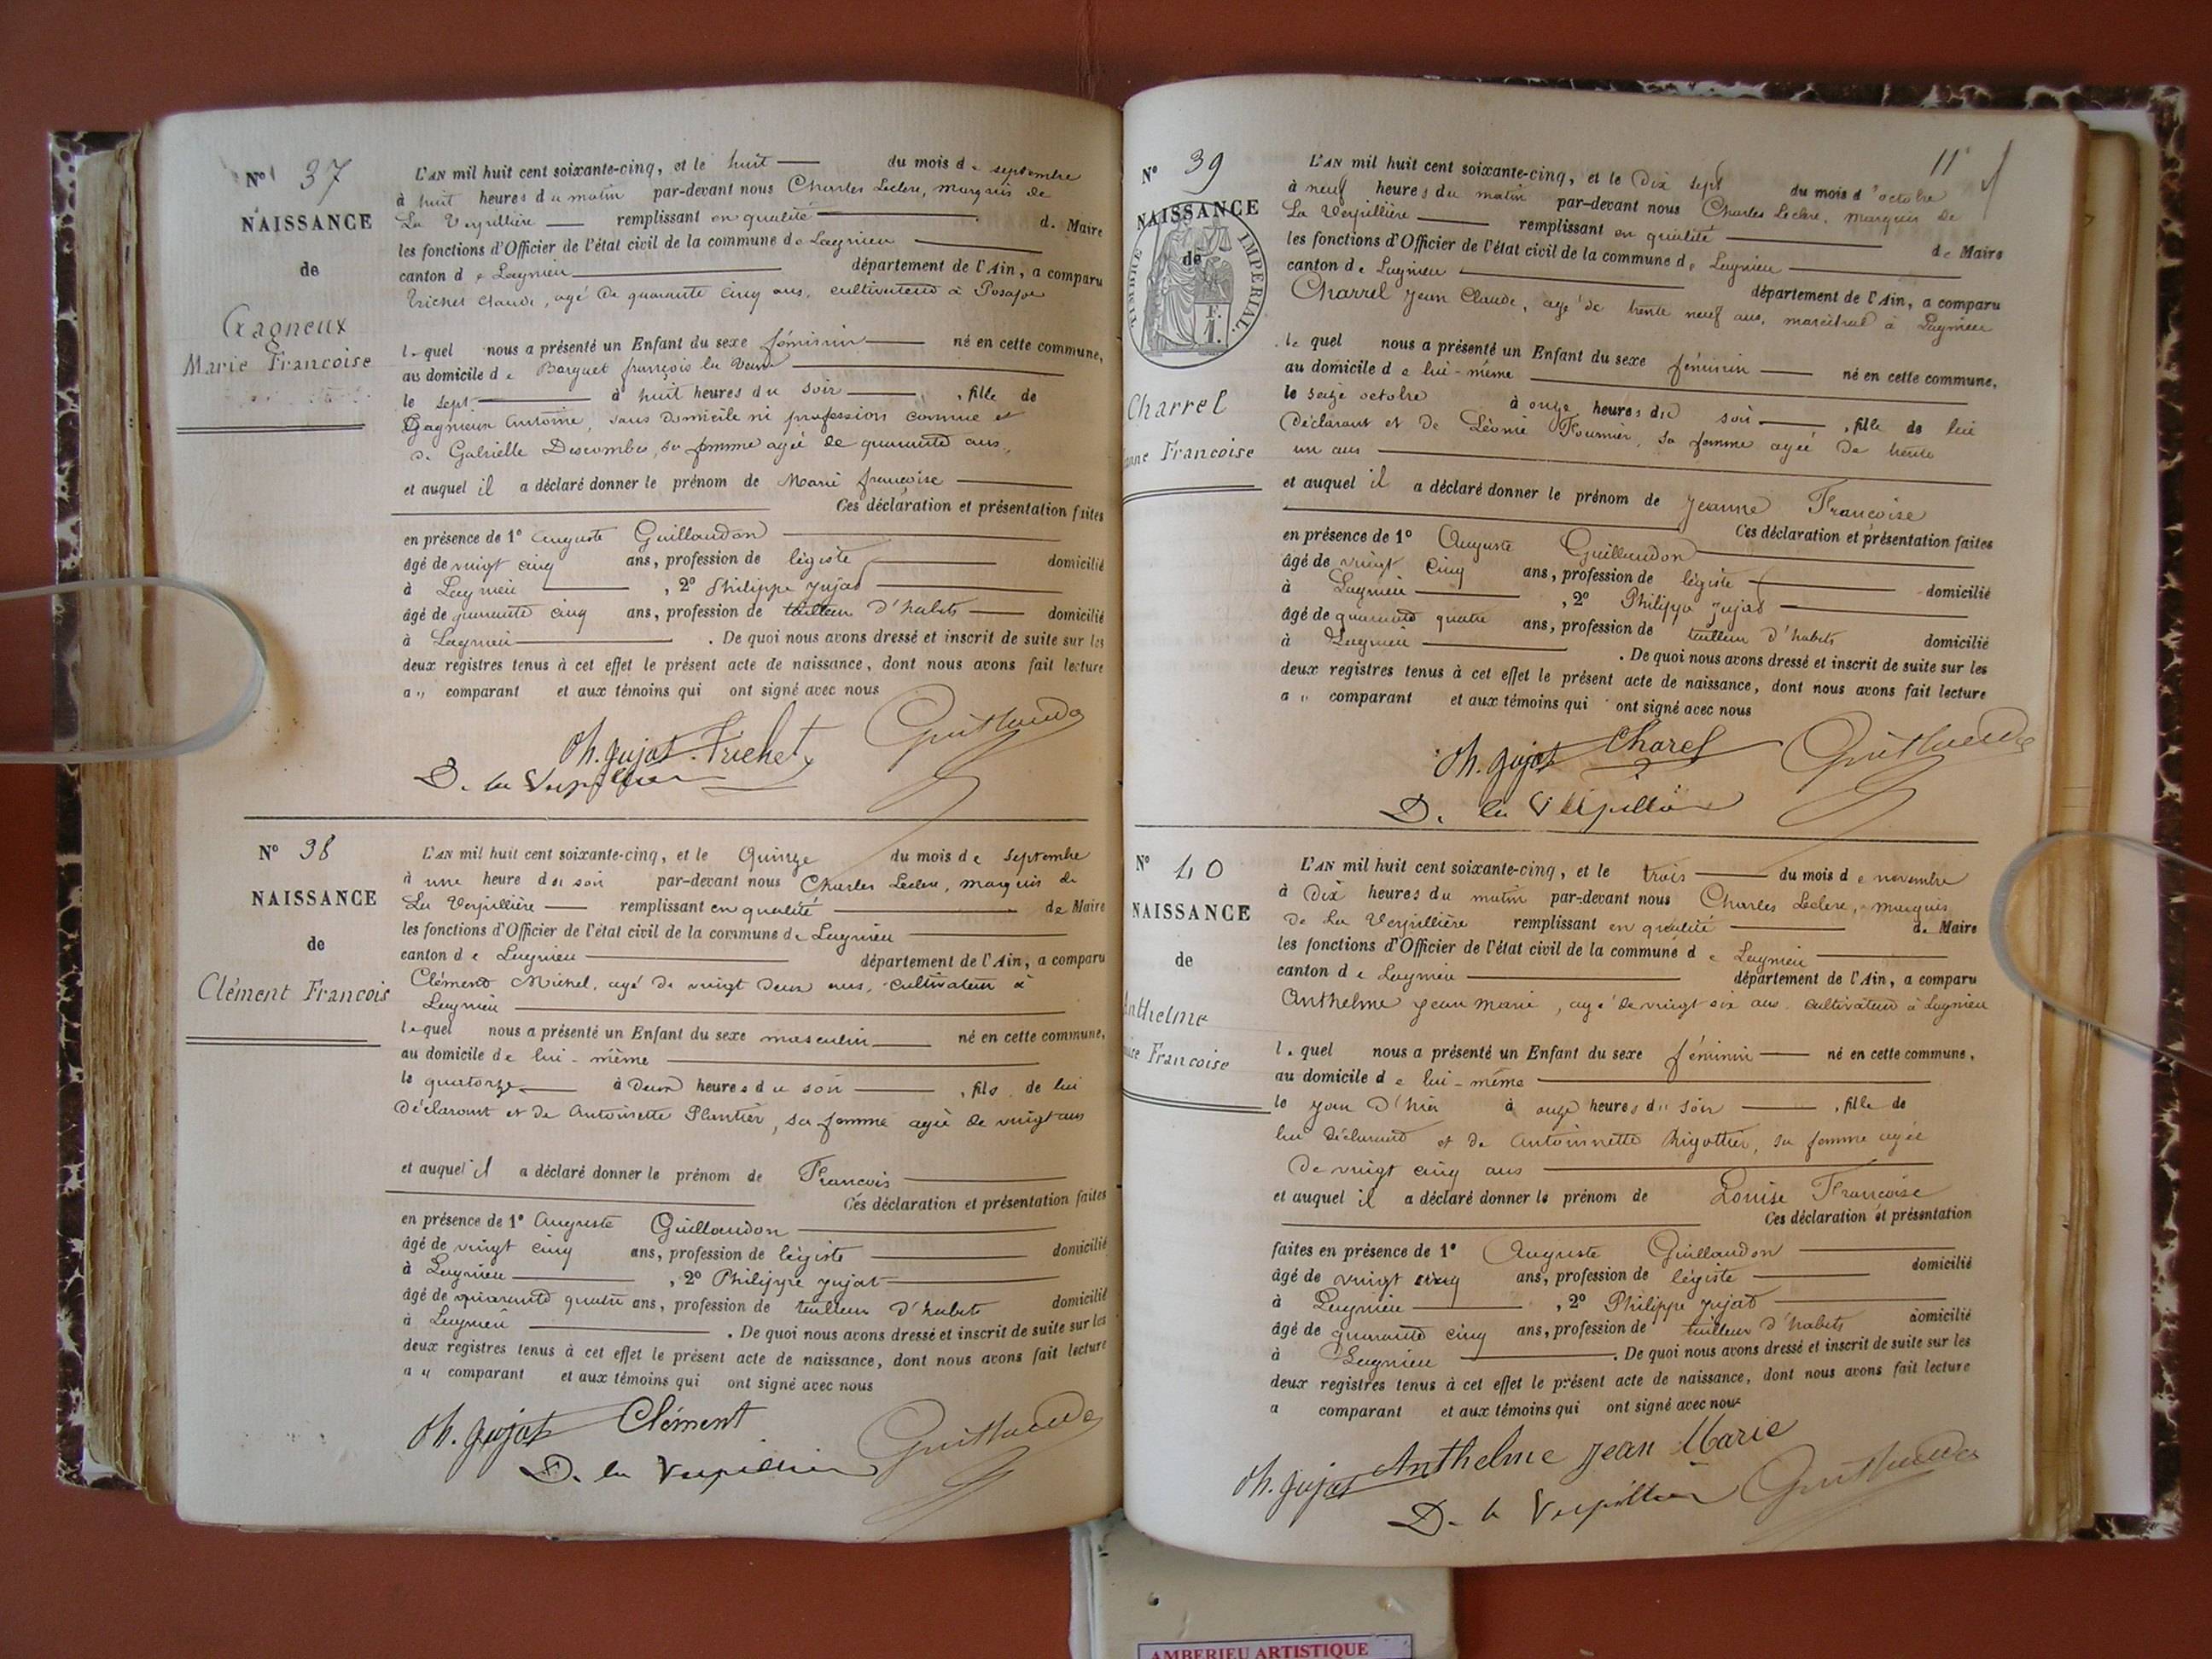 N° 37
NAISSANCE
de
Gagneux
Marie Francoise
L'AN mil huit cent soixante-cinq, et le huit du mois de septembre
à huit heures du matin par-devant nous Charles Leclerc, marquis de
La Verpillière remplissant en qualité de Maire
les fonctions d'Officier de l'état civil de la commune de Lagnieu
canton de Lagnieu département de l'Ain, a comparu
Trichet Claude, agé de quarante cinq ans, cultivateur à Posafol
lequel nous a présenté un Enfant du sexe féminin né en cette commune,
au domicile de Barquet françois la Veuve
le sept à huit heures du soir, fille de
Gagneux Antoine, sans domicile ni profession connue et
de Gabrielle Descombes, sa femme agée de quarante ans,
et auquel il a déclaré donner le prénom de Marie françoise
Ces déclaration et présentation faites
en présence de 1° Auguste Guillaudon
âgé de vingt cinq ans, profession de légiste domicilié
à Lagnieu, 2° Philippe Jujat
âgé de quarante cinq ans, profession de tailleur d'habits domicilié
à Lagnieu. De quoi nous avons dressé et inscrit de suite sur les
deux registres tenus à cet effet le présent acte de naissance, dont nous avons fait lecture
a " comparant et aux témoins qui ont signé avec nous
Ph. Jujat Trichet Guillaudon
D. la Verpillière
N° 38
NAISSANCE
de
Clément Francois
L'AN mil huit cent soixante-cinq, et le Quinze du mois de Septembre
à une heure du soir par-devant nous Charles Leclerc, marquis de
La Verpillière remplissant en qualité de Maire
les fonctions d'Officier de l'état civil de la commune de Lagnieu
canton de Lagnieu département de l'Ain, a comparu
Clément Michel, agé de vingt deux ans, cultivateur à
Lagnieu
lequel nous a présenté un Enfant du sexe masculin né en cette commune,
au domicile de lui-même
le quatorze à Deux heures du soir, fils de lui
Déclarant et de Antoinette Plantier, sa femme agée de vingt ans
et auquel il a déclaré donner le prénom de Francois
Ces déclaration et présentation faites
en présence de 1° Auguste Guillaudon
âgé de vingt cinq ans, profession de légiste domicilié
à Lagnieu, 2° Philippe Jujat
âgé de quarante quatre ans, profession de tailleur d'habits domicilié
à Lagnieu. De quoi nous avons dressé et inscrit de suite sur les
deux registres tenus à cet effet le présent acte de naissance, dont nous avons fait lecture
a " comparant et aux témoins qui ont signé avec nous
Ph. Jujat Clément Guillaudon
D. la Verpillière
11
N° 39
NAISSANCE
de
TIMBRE IMPERIAL
F.
1.
Charrel
anne Francoise
L'AN mil huit cent soixante-cinq, et le Dix sept du mois d'octobre
à neuf heures du matin par-devant nous Charles Leclerc, marquis de
La Verpillière remplissant en qualité de Maire
les fonctions d'Officier de l'état civil de la commune de Lagnieu
canton de Lagnieu département de l'Ain, a comparu
Charrel Jean Claude, agé de trente neuf ans, maréchal à Lagnieu
lequel nous a présenté un Enfant du sexe féminin né en cette commune,
au domicile de lui-même
le seize octobre à onze heures du soir, fille de lui
Déclarant et de Léonie Fournier, sa femme agée de trente
un ans
et auquel il a déclaré donner le prénom de Jeanne Francoise
Ces déclaration et présentation faites
en présence de 1° Auguste Guillaudon
âgé de vingt cinq ans, profession de légiste domicilié
à Lagnieu, 2° Philippe Jujat
âgé de quarante quatre ans, profession de tailleur d'habits domicilié
à Lagnieu. De quoi nous avons dressé et inscrit de suite sur les
deux registres tenus à cet effet le présent acte de naissance, dont nous avons fait lecture
a " comparant et aux témoins qui ont signé avec nous
Ph. Jujat Charel Guillaudon
D. la Verpillière
N° 40
NAISSANCE
de
Anthelme
uise Francoise
L'AN mil huit cent soixante-cinq, et le trois du mois de novembre
à Dix heures du matin par-devant nous Charles Leclerc, marquis
de La Verpillière remplissant en qualité de Maire
les fonctions d'Officier de l'état civil de la commune de Lagnieu
canton de Lagnieu département de l'Ain, a comparu
Anthelme Jean Marie, agé de vingt six ans cultivateur à Lagnieu
lequel nous a présenté un Enfant du sexe féminin né en cette commune,
au domicile de lui-même
le jour d'hier à onze heures du soir, fille de
lui déclarant et de Antoinnette Rigottier, sa femme agée
de vingt cinq ans
et auquel il a déclaré donner le prénom de Louise Francoise
Ces déclaration et présentation
faites en présence de 1° Auguste Guillaudon
âgé de vingt cinq ans, profession de légiste domicilié
à Lagnieu, 2° Philippe Jujat
âgé de quarante cinq ans, profession de tailleur d'habits domicilié
à Lagnieu. De quoi nous avons dressé et inscrit de suite sur les
deux registres tenus à cet effet le présent acte de naissance, dont nous avons fait lecture
a comparant et aux témoins qui ont signé avec nous
Ph. Jujat Anthelme Jean Marie
D. la Verpillière Guillaudon
AMBERIEU ARTISTIQUE